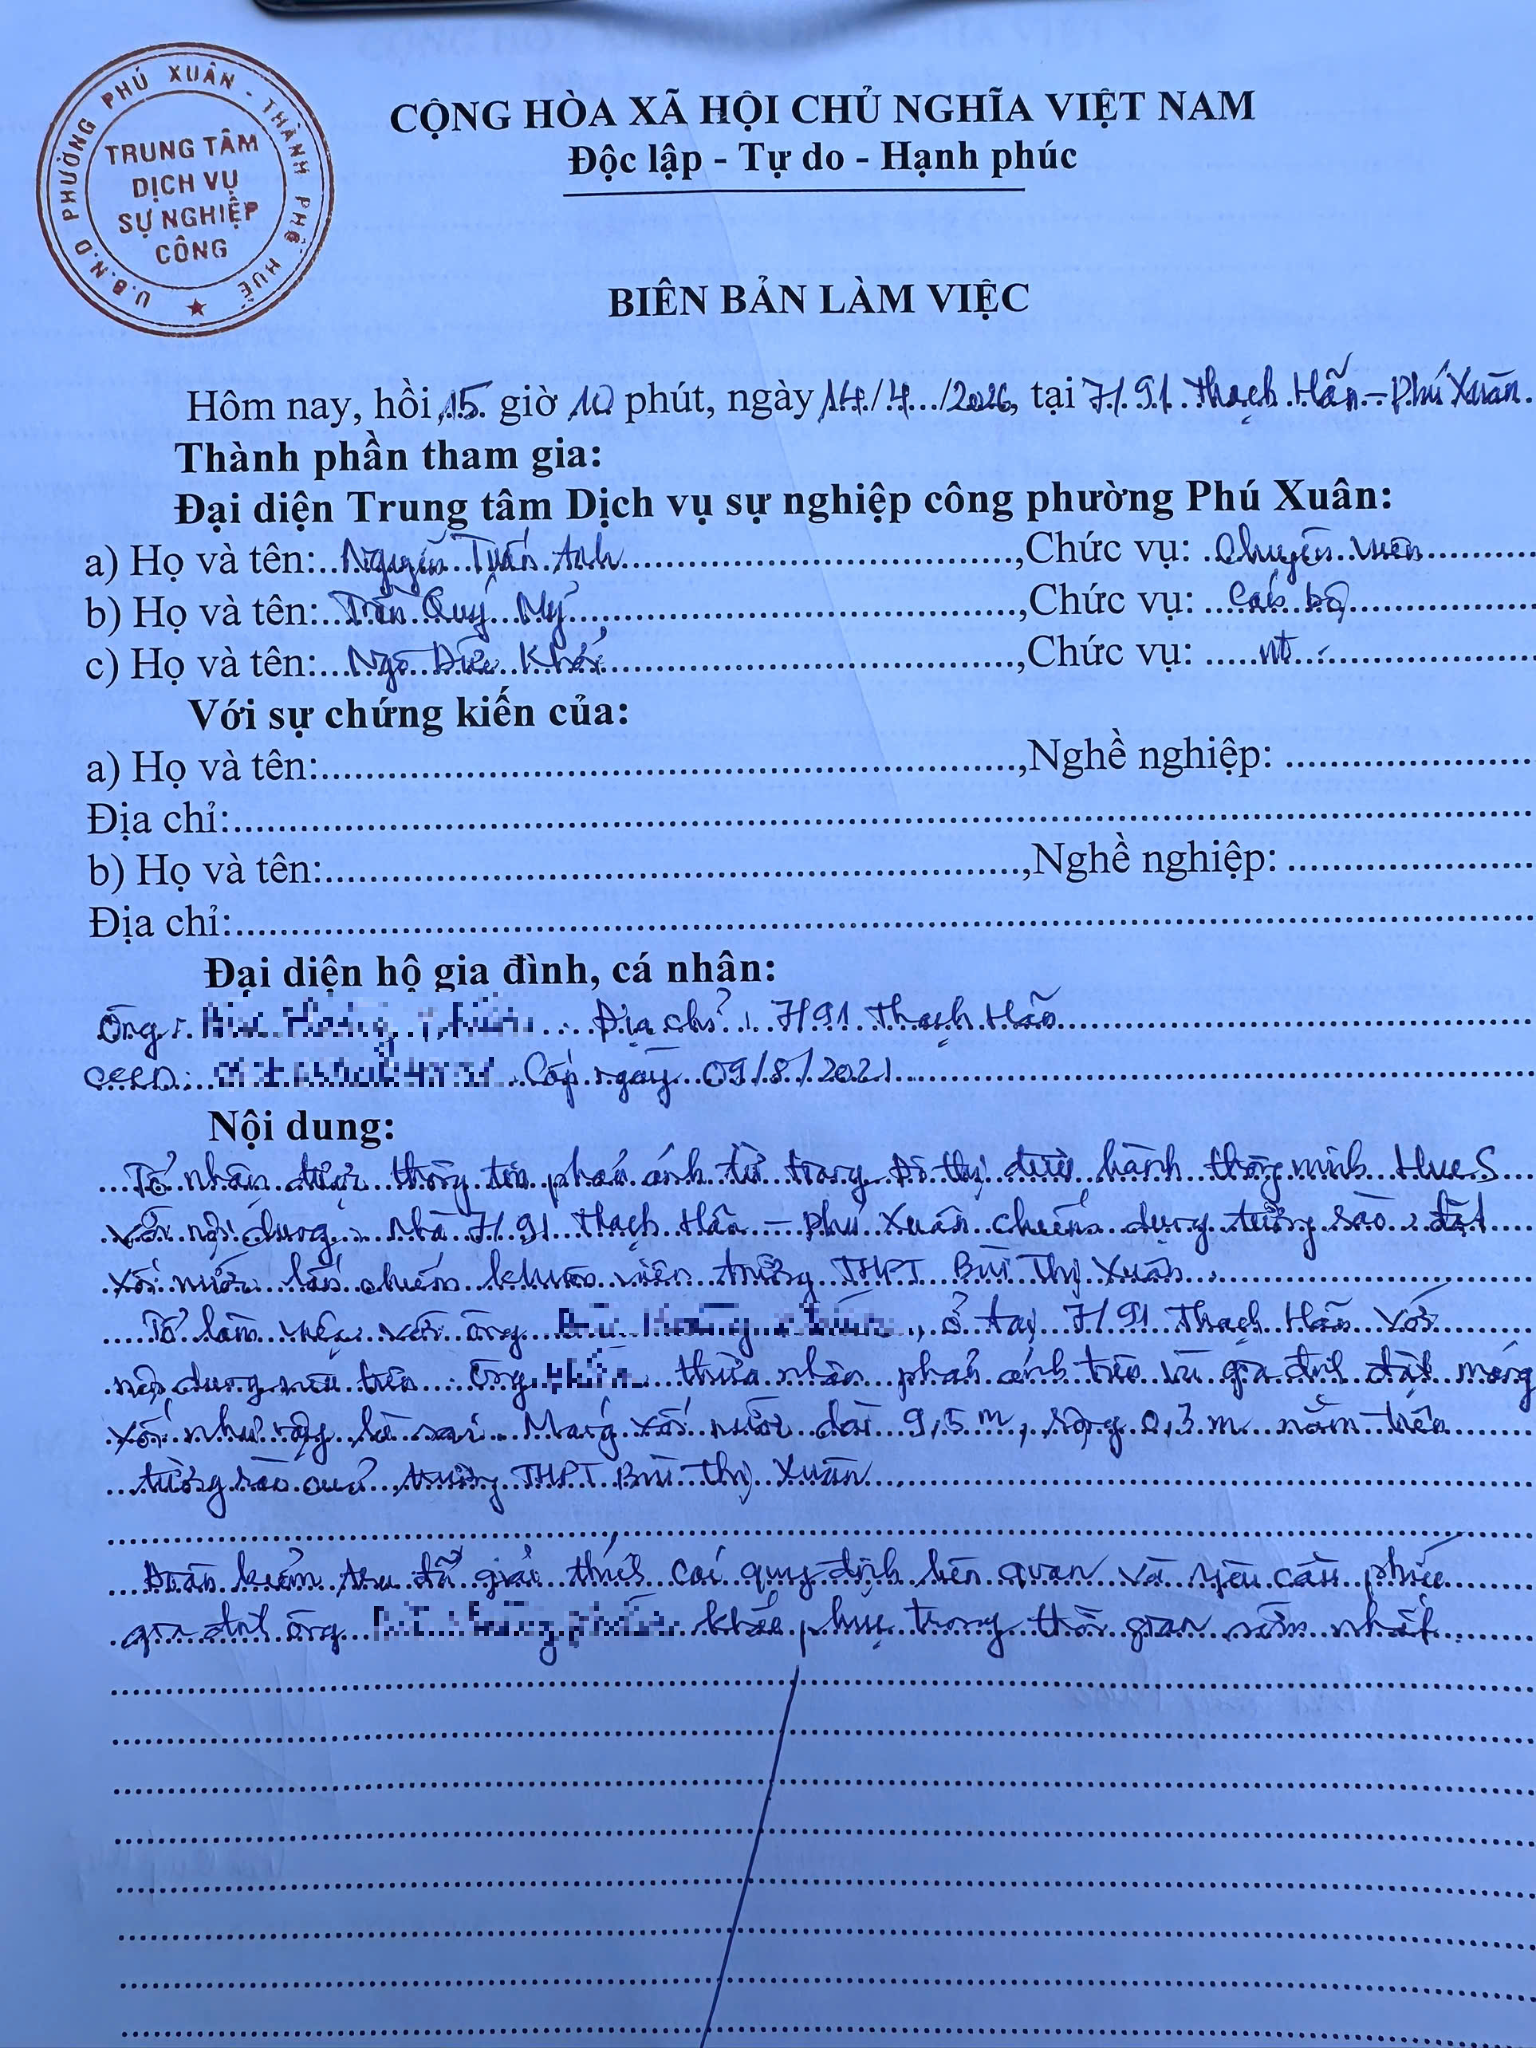 U.B.N.D PHƯỜNG PHÚ XUÂN - THÀNH PHỐ HUẾ
TRUNG TÂM
DỊCH VỤ
SỰ NGHIỆP
CÔNG
CỘNG HÒA XÃ HỘI CHỦ NGHĨA VIỆT NAM
Độc lập - Tự do - Hạnh phúc
BIÊN BẢN LÀM VIỆC
Hôm nay, hồi 15 giờ 10 phút, ngày 14/4/2026, tại 7/91 Thạch Hãn - Phú Xuân.
Thành phần tham gia:
Đại diện Trung tâm Dịch vụ sự nghiệp công phường Phú Xuân:
a) Họ và tên: Nguyễn Tuấn Anh, Chức vụ: Chuyên viên
b) Họ và tên: Trần Quý Mỹ, Chức vụ: Cán bộ
c) Họ và tên: Ngô, Chức vụ: nt
Với sự chứng kiến của:
a) Họ và tên:, Nghề nghiệp:
Địa chỉ:
b) Họ và tên:, Nghề nghiệp:
Địa chỉ:
Đại diện hộ gia đình, cá nhân:
Ông: Địa chỉ: 7/91 Thạch Hãn
CCCD: Cấp ngày 09/8/2021
Nội dung:
Tổ nhận được thông tin phản ánh từ trang Đô thị điều hành thông minh Hue S
với nội dung: nhà 7/91 Thạch Hãn - Phú Xuân chiếm dụng tường rào, đặt
xối nước lấn chiếm khuôn viên trường THPT Bùi Thị Xuân.
Tổ làm việc với ông, ở tại 7/91 Thạch Hãn với
nội dung nêu trên. Ông thừa nhận phản ánh trên và gia đình đặt máng
xối như vậy là sai. Máng xối nước dài 9,5 m, rộng 0,3 m nằm trên
tường rào của trường THPT Bùi Thị Xuân.
Đoàn kiểm tra đã giải thích các quy định liên quan và yêu cầu phía
gia đình ông khắc phục trong thời gian sớm nhất.